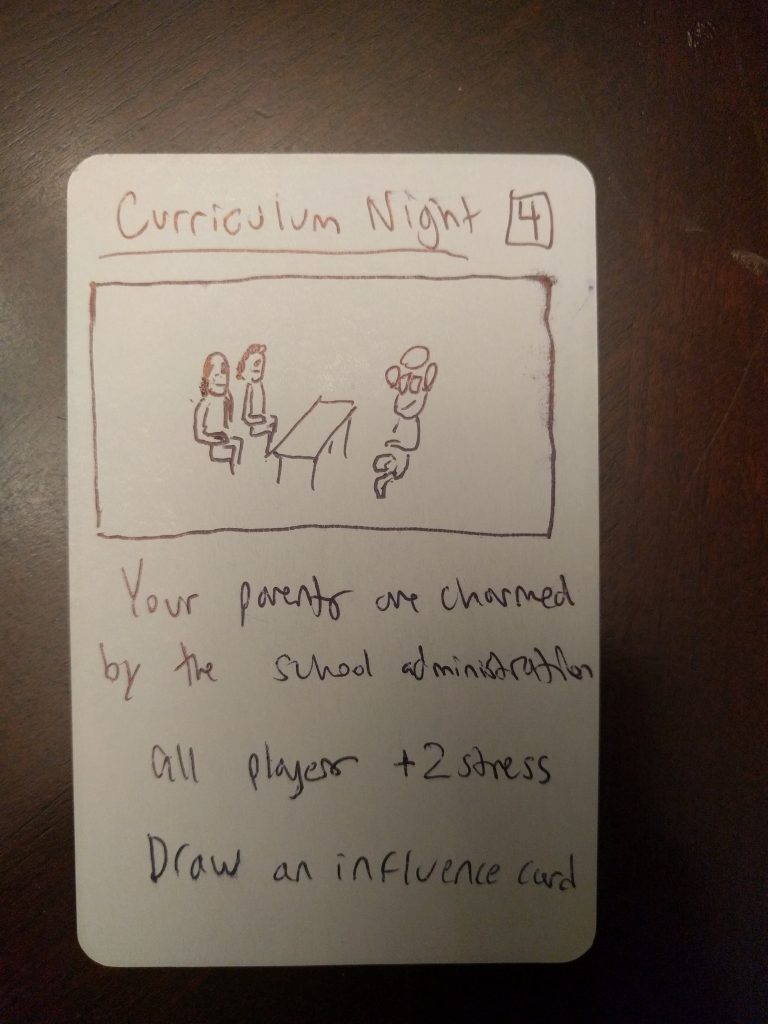 Curriculum Night 4
Your parents are charmed
by the school administration
all players +2 stress
Draw an influence card